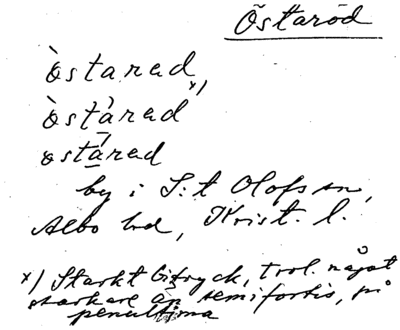 Östaröd
òstarad x)
òstàrad
ostá̱rad
by i S:t Olofs sn,
Albo hd, Krist. l.
x) Starkt bitryck, trol. något
starkare än semifortis, på
penultima